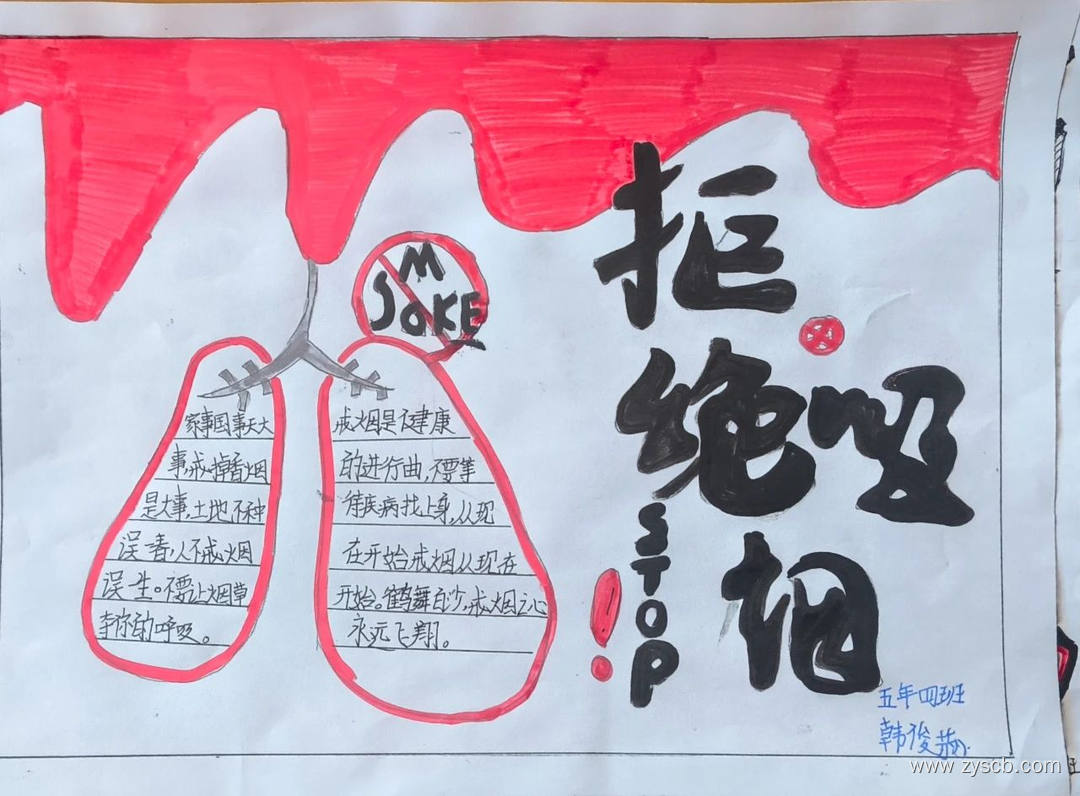 拒绝吸烟
STOP
!
SMOKE
家事国事天大
事,戒掉香烟
是大事,土地不种
误一春,人不戒烟
误一生。不要让烟草
夺你的呼吸。
戒烟是不健康
的进行曲,不要等
待疾病找上身,从现
在开始戒烟从现在
开始。鹤舞白沙,戒烟之心
永远飞翔。
五年四班
韩俊
www.zyscb.com